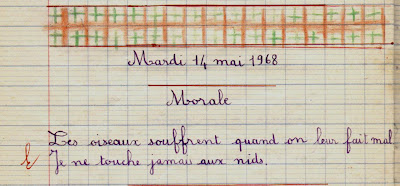 Mardi 14 mai 1968
Morale
Les oiseaux souffrent quand on leur fait mal
Je ne touche jamais aux nids.